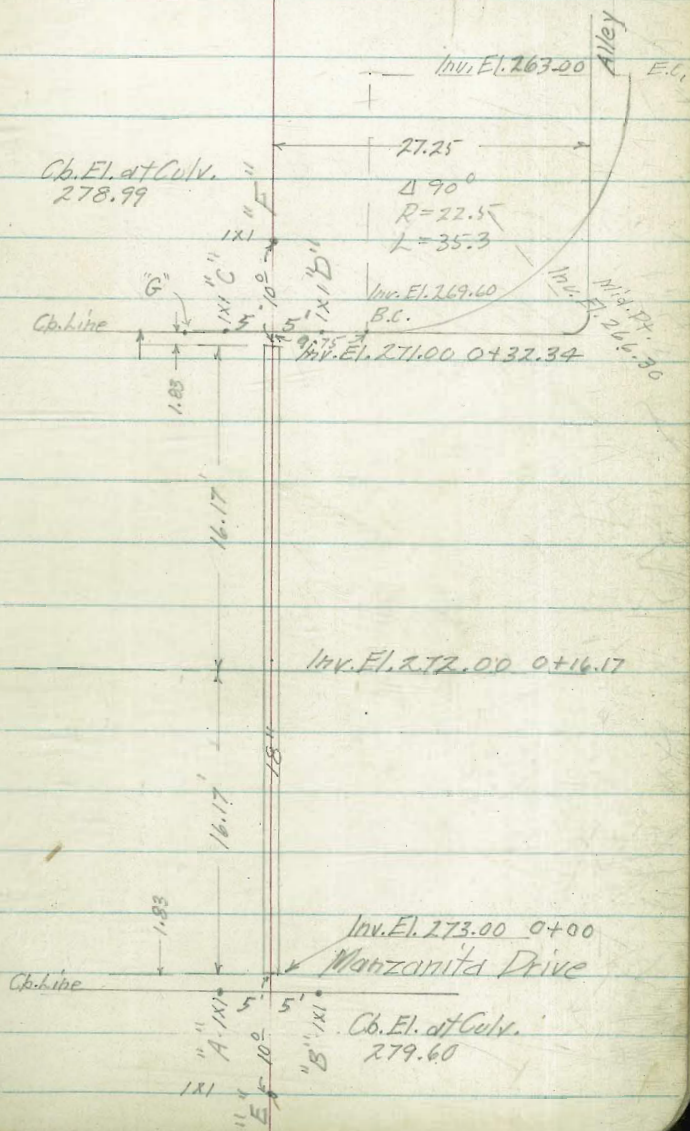 Alley
Inv. El. 263.00
E.C.
27.25
Cb. El. at Culv.
278.99
Δ 90°
R=22.5
L=35.3
"F"
1x1
10⁰
"G"
1x1 "C"
1x1 "D"
Inv. El. 269.60
B.C.
Mid. Pt.
Inv. El. 266.30
Cb. Line
5'
5'
9.75
Inv. El. 271.00 0+32.34
1.83
16.17'
Inv. El. 272.00 0+16.17
18"
16.17'
1.83
Inv. El. 273.00 0+00
Manzanita Drive
Cb. Line
5'
5'
"A" 1x1
"B" 1x1
Cb. El. at Culv.
279.60
10⁰
1x1
"E"